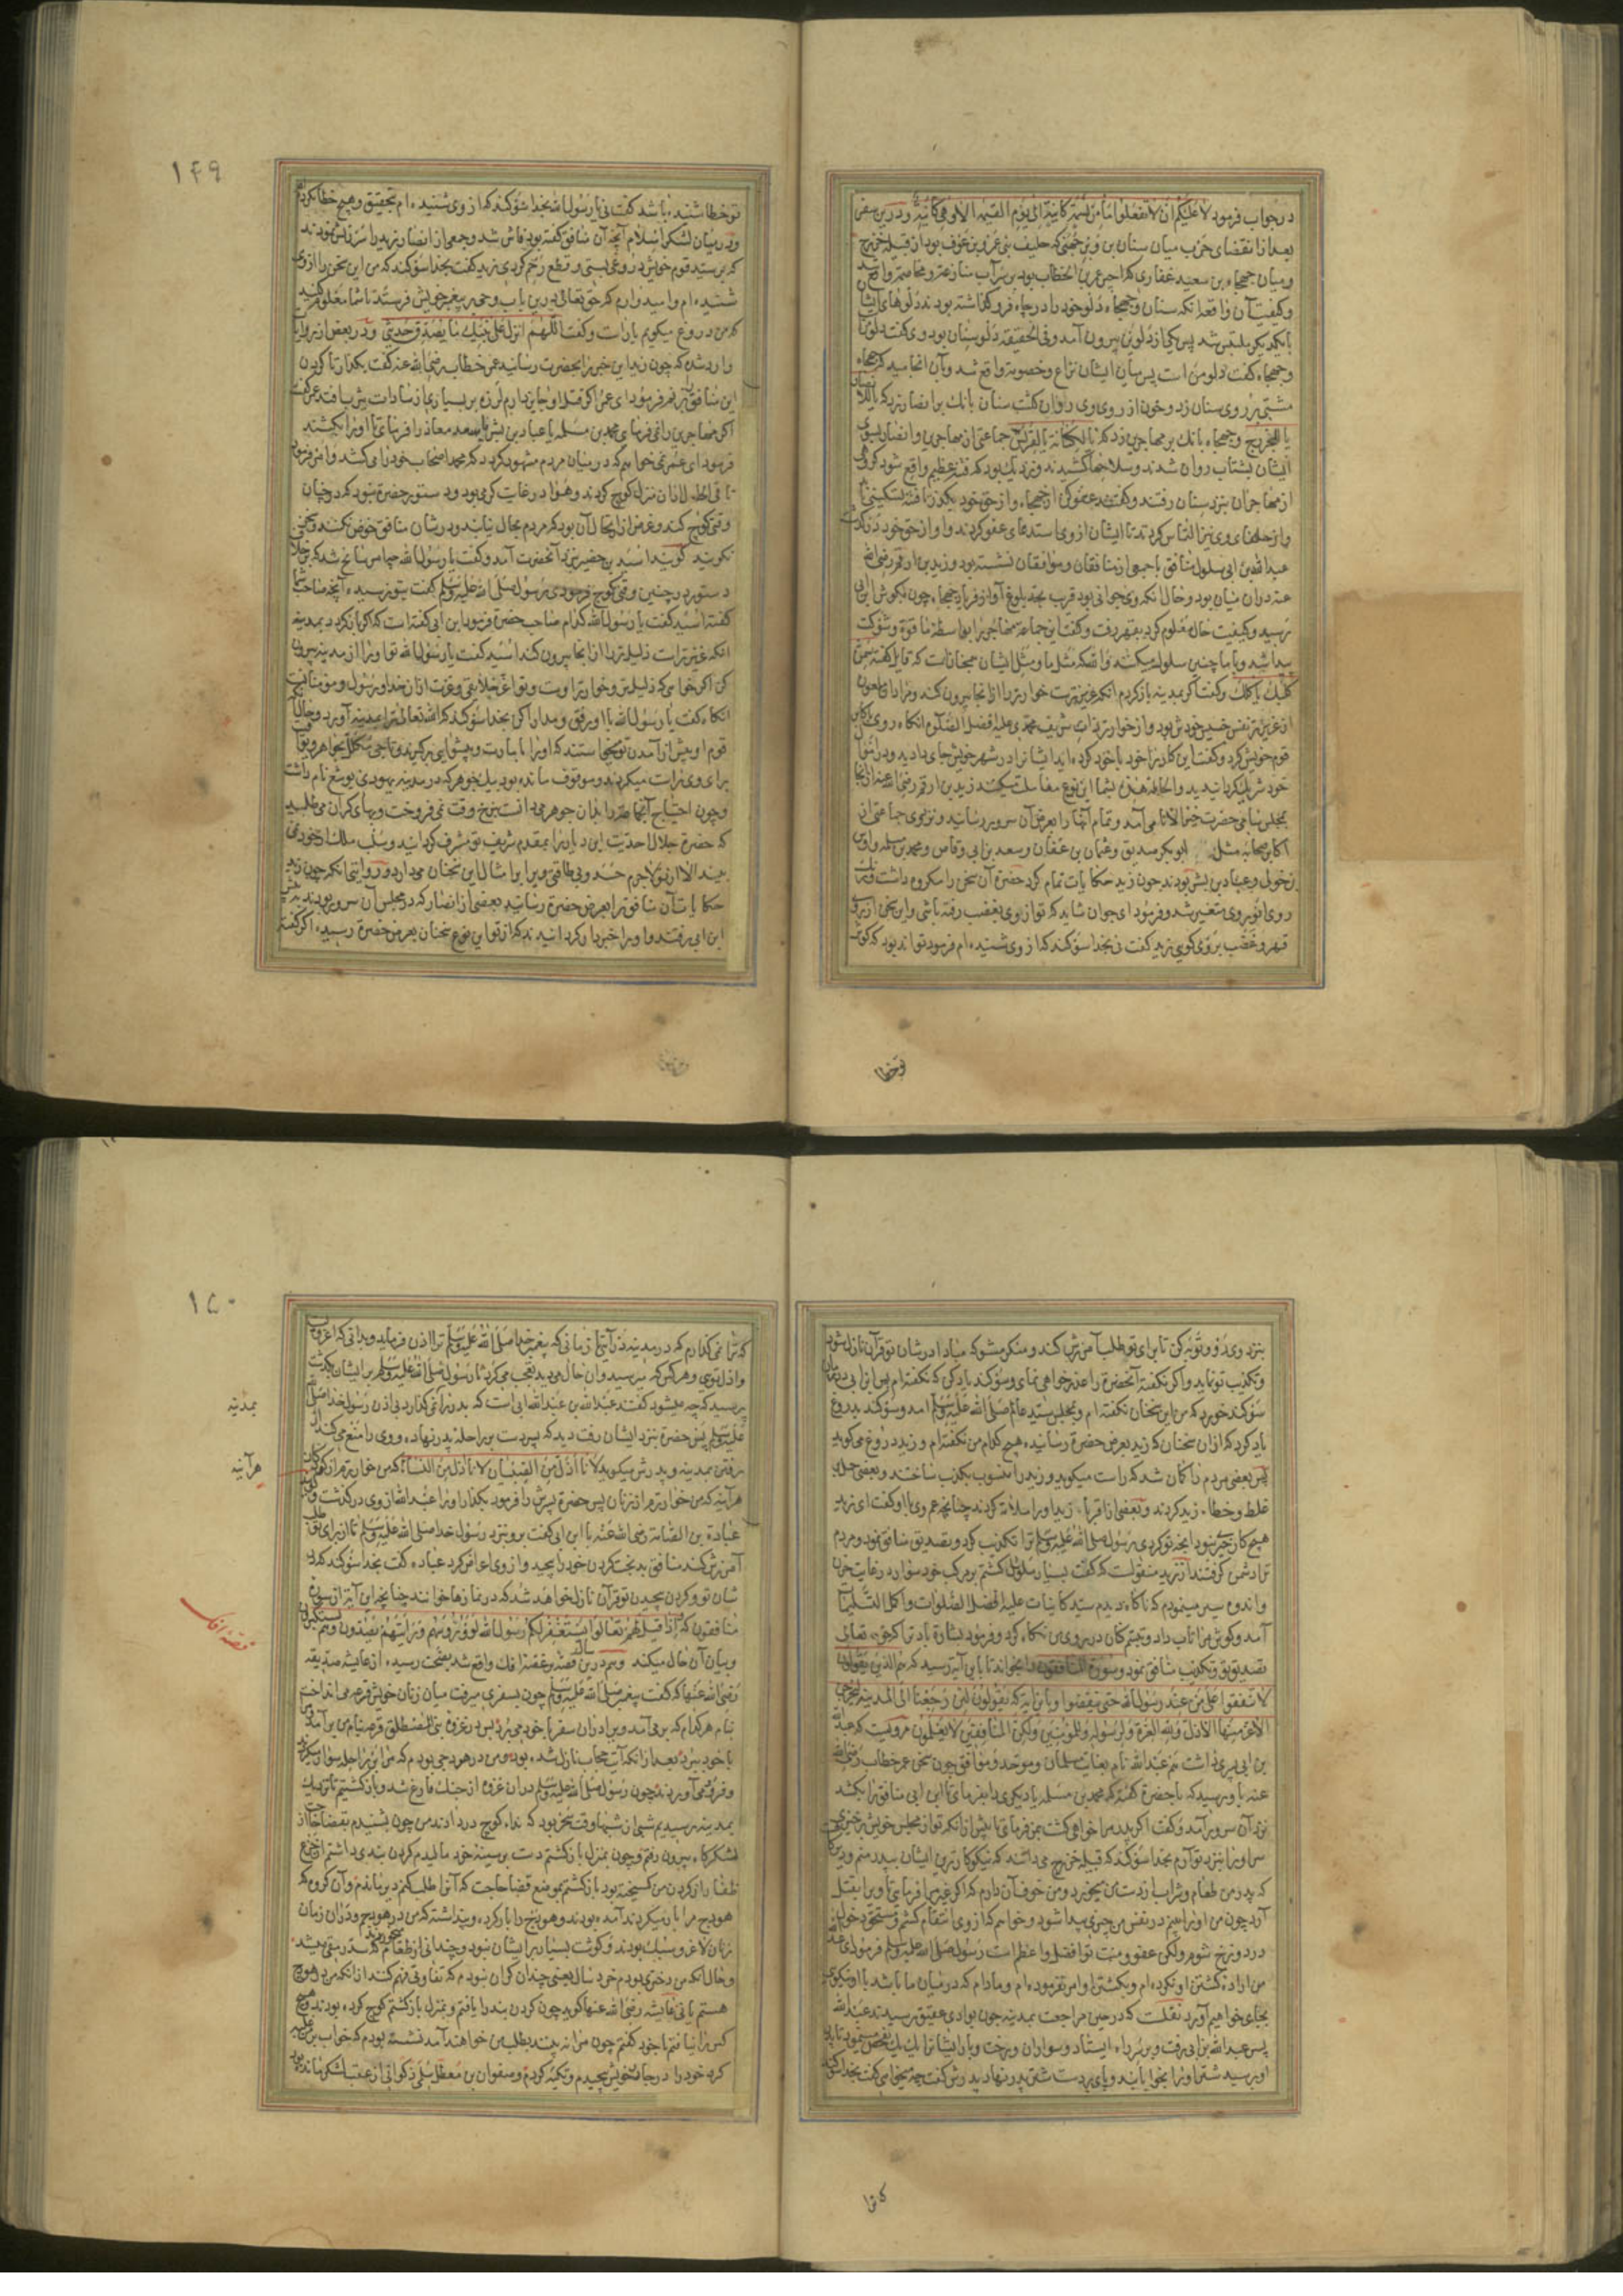 در جواب فرمود لا علیکم ان لا تفعلوا ما من نسمة کائنة الی یوم القیمة الا و هی کائنة و درین سفر
بعد از انقضای حرب میان سنان بن وبر جهنی که حلیف بنی عمرو بن عوف بود از قبیله خزرج
و میان جهجاه بن سعید غفاری که اجیر عمر بن الخطاب بود بر سر آب منازعه و مخاصمه واقع شد
و کیفیت آن واقعه آنکه سنان و جهجاه دلو خود را در چاه فرو گذاشته بودند دلوهای ایشان
بایکدیگر ملتبس شد پس یکی از دلوین بیرون آمد و فی الحقیقه دلو سنان بود وی گفت دلو منست
و جهجاه گفت دلو من است پس میان ایشان نزاع و خصومة واقع شد و بآن انجامید که جهجاه
مشتی بر روی سنان زد و خون از روی وی روان گشت سنان بانک بر انصار زد که
یا للخزرج و جهجاه بانک بر مهاجرین زد که یا لکنانة یا لقریش جماعتی از مهاجرین و انصار بسوی
ایشان بشتاب روان شدند و سلاحها کشیدند و نزدیک بود که فتنه عظیم واقع شود گروهی
از مهاجران نزد سنان رفتند و گفتند عفو کن از جهجاه و از حق خود بگذر تا فتنه تسکین
و از حلفای وی نیز التماس کردند تا ایشان از وی استدعای عفو کردند و او از حق خود درگذشت
عبدالله بن ابی سلول منافق با جمعی از منافقان و موافقان نشسته بود و زید بن ارقم رضی الله
عنه در آن میان بود و حال آنکه وی جوانی بود قریب بحد بلوغ آواز فریاد جهجاه چون بگوش ابن ابی
رسید و کیفیت حال معلوم کرد بقهر رفت و گفت این جماعه مهاجر را بواسطه ما قوة و شوکت
پیدا شد و با ما چنین سلوک میکنند والله که مثل ما و مثل ایشان همچنانست که قایل گفته سمن
کلبک یاکلک و گفت اگر بمدینه باز کردم آنکه عزیزترست خوارتر را از آنجا بیرون کند و مراد آن ملعون
از عزیزتر نفس خسیس خودش بود و از خوارتر ذات شریف محمدی علیه افضل الصلوة آنکاه روی باکابر
قوم خویش کرد و گفت این کار را خود با خود کرده اید ایشانرا در شهر خویش جای دادید و در اموال
خود شریک گردانیدید والحاله هذه بشما این نوع معاملت میکنند زید بن ارقم رضی الله عنه از آنجا
بمجلس سامی حضرت خیر الانام آمد و تمام آنها را بعرض آن سرور رسانید و نزد وی جماعتی از
اکابر صحابه مثل ابوبکر صدیق و عثمان بن عفان و سعد بن ابی وقاص و محمد بن مسلمه و اوس
بن خولی و عباد بن بشر بودند چون زید حکایات تمام کرد حضرة آن سخن را مکروه داشت و رنک
روی انور وی متغیر شد و فرمود ای جوان شاید که تو از وی بغضب رفته باشی و این سخن از روی
قهر و غضب بر وی کویی زید گفت نی بخدا سوکند که از وی شنیده ام فرمود تواند بود که گوش
تو خطا
۱۴۹
تو خطا شنیده باشد گفت نی یا رسول الله بخدا سوکند که از وی شنیده ام بتحقیق و هیچ خطا نکرده
و در میان لشکر اسلام آنچه آن منافق گفته بود فاش شد و جمعی از انصار زید را سرزنش نمودند
که بر سید قوم خویش دروغی بستی و قطع رحم کردی زید گفت بخدا سوکند که من این سخن را از وی
شنیده ام و امیدوارم که حق تعالی درین باب وحی بر پیغمبر خویش فرستد تا شما معلوم کنید
که من دروغ میکویم یا راست و گفت اللهم انزل علی نبیک ما یصدق حدیثی و در بعض از روایات
وارد شده که چون زید این خبر بآنحضرت رسانید عمر خطاب رضی الله عنه گفت بگذار تا گردن
این منافق بزنم فرمود ای عمر اگر قتل او جایز دارم لرزه بر بسیاری از سادات یثرب افتد عمر گفت
اگر مهاجرین را نمی فرمای محمد بن مسلمه یا عباد بن بشر یا سعد معاذ را فرمای تا او را بکشند
فرمود ای عمر نمی خواهم که در میان مردم مشهور گردد که محمد اصحاب خود را می کشد و امر فرمود
تا فی الحال از آن منزل کوچ کردند و هوا در غایت گرمی بود و دستور حضرة نبود که در چنان
وقتی کوچ کند و غرض از ارتحال آن بود که مردم مجال نیابند و در شان منافق خوض نکنند و سخنی
نکویند گویند اسید بن حضیر نزد آنحضرت آمد و گفت یا رسول الله چه امر سانح شد که بر خلاف
دستور در چنین وقتی کوچ فرمودی رسول صلی الله علیه وسلم گفت بتو نرسیده آنچه صاحب شما
گفته اسید گفت یا رسول الله کدام صاحب حضرة فرمود ابن ابی گفته است که اگر باز گردد بمدینه
آنکه عزیزتر است ذلیلتر را از آنجا بیرون کند اسید گفت یا رسول الله تو او را از مدینه بیرون
کن اگر خواهی که ذلیلتر و خوارتر اوست و تو اعز خلایقی و عزت از آن خدا و رسول و مومنانست
آنکاه گفت یا رسول الله با او رفق و مدارا کن بخدا سوکند که الله تعالی ترا بمدینه آورد و حال آنکه
قوم او پیش از آمدن تو میخواستند که او را بامارت و پیشوایی برگیرند و تاجی مکلل بجواهر و یواقیت
برای وی راست میکردند و موقوف مانده بود بیک جوهر که در مدینه یهودی یوشع نام داشت
و چون احتیاج آنجماعة را بدان جوهر می دانست بنرخ وقت نمی فروخت و بهای گران می طلبید
که حضرة جلال احدیت این دیار را بمقدم شریف تو مشرف گردانید و سلب ملک او خود نمی
بیند الا از تو لاجرم حسد و بی طاقتی ویرا بر امثال این سخنان می دارد و روایتی آنکه چون زید
حکایات آن منافق را بعرض حضرة رسانید بعضی از انصار که در مجلس آن سرور بودند نزد
ابن ابی رفتند و او را خبردار گردانیدند که از تو این نوع سخنان بعرض حضرة رسیده اگر گفته
بنزد وی رو و توبه کن تا برای تو طلب آمرزش کند و منکر مشو که مبادا در شان تو قرآن نازل شود
و تکذیب تو نماید و اگر نکفته آنحضرة را عذرخواهی نمای و سوکند یاد کن که نکفته ام پس ابن ابی در زمان
سوکند خورد که من این سخنان نکفته ام و بمجلس سید عالم صلی الله علیه وسلم آمد و سوکند بدروغ
یاد کرد که از آن سخنان که زید بعرض حضرة رسانیده هیچ کدام من نکفته ام و زید دروغ می گوید
پس بعضی مردم را گمان شد که راست میکوید و زید را منسوب بکذب ساختند و بعضی حمل بر
غلط و خطاء زید کردند و بعضی از اقرباء زید او را ملامة کردند چنانچه عم وی با او گفت ای زید
هیچ کار بهتر نبود آنچه تو کردی رسول صلی الله علیه وسلم ترا تکذیب کرد و تصدیق منافق نمود و مردم
ترا دشمن گرفتند از زید منقولست که گفت بسیار ملول گشتم بر مرکب خود سوار در غایت حزن
و اندوه سیر مینمودم که ناکاه دیدم سید کاینات علیه افضل الصلوات و اکمل التسلیمات
آمد و کوش مرا تاب داد و تبسم کنان در روی من نکاه کرد و فرمود بشارة باد ترا که حق تعالی
تصدیق تو و تکذیب منافق نمود و سورة المنافقون را بخواند تا باین آیه رسید که هم الذین یقولون
لا تنفقوا علی من عند رسول الله حتی ینفضوا و باین آیه که یقولون لئن رجعنا الی المدینة لیخرجن
الاعز منها الاذل و لله العزة و لرسوله و للمؤمنین ولکن المنافقین لا یعلمون مرویست که عبد الله
بن ابی پسری داشت هم عبدالله نام بغایت مسلمان و موحد و موافق چون سخن عمر خطاب رضی الله
عنه باو رسید که با حضرة گفته که محمد بن مسلمه یا دیکری را بفرمای تا ابن ابی منافق را بکشد
نزد آن سرور آمد و گفت اگر پدر مرا خواهی کشت بمن فرمای تا پیش از آنکه تو از مجلس خویش برخیزی
سر او را بنزد تو آرم بخدا سوکند که قبیله خزرج می دانند که نیکوکارترین ایشان بپدر منم و
که پدر من طعام و شراب از دست من میخورد و من خوف آن دارم که اگر غیر مرا فرمای تا ویرا بقتل
آرد چون من او را بینم در نفس من چیزی پیدا شود و خواهم که از وی انتقام کشم و مستحق دخول
در دوزخ شوم ولکن عفو و منت تو افضل و اعظم است رسول صلی الله علیه وسلم فرمود ای عبدالله
من اراده کشتن او نکرده ام و بکشتن او امر نفرموده ام و مادام که در میان ما باشد با او نیکوی
بجای خواهیم آورد نقلست که در حین مراجعت بمدینه چون بوادی عقیق رسیدند عبدالله
پسر عبدالله بن ابی رفت و بر سر راه ایستاد و سواران
او برسید شتر او را بخوابانید و پای بر دست شتر پدر نهاد پدرش گفت چه میخواهی گفت بخدا سوکند
که ترا
۱۵۰
که ترا نمی گذارم که در مدینه درآیی تا زمانی که پیغمبر خدا صلی الله علیه وسلم ترا اذن فرماید و بدانی که اعز اوست
و اذل توی و هر کس که میرسید و آن حال می دید تعجب می کرد تا رسول صلی الله علیه وسلم بر ایشان بگذشت
پرسید که چه میشود گفتند عبدالله بن عبدالله ابی است که پدر را نمی گذارد بی اذن رسول خدا صلی الله
علیه وسلم پس حضرة بنزد ایشان رفت دید که پسر دست بر راحله پدر نهاده و وی را منع می کند از
رفتن بمدینه و پدرش میکوید لانا اذل من الصبیان لانا اذل من النساء که من خوارترم از کودکان
هرآینه که من خوارترم از زنان پس حضرة پسرش را فرمود بگذار او را عبدالله از وی درگذشت
عبادة بن الصامت رضی الله عنه با ابن ابی گفت برو نزد رسول خدا صلی الله علیه وسلم تا از برای تو طلب
آمرزش کند منافق بدبخت گردن خود را پیچید و از وی اعراض کرد عباده گفت بخدا سوکند که در
شان تو و گردن پیچیدن تو قرآن نازل خواهد شد که در نمازها خوانند چنانچه این آیه از سوره
منافقون که و اذا قیل لهم تعالوا یستغفر لکم رسول الله لووا رؤسهم و رأیتهم یصدون و هم مستکبرون
و بیان آن حال میکند و هم درین سال قصه پر غصه افک واقع شد بصحت رسیده از عایشه صدیقه
رضی الله عنها که گفت پیغمبر صلی الله علیه وسلم چون بسفری میرفت میان زنان خویش قرعه می انداخت
بنام هر کدام که برمی آمد ویرا در آن سفر با خود می برد پس در غزوه بنی المصطلق قرعه بنام من برآمد
با خود ببرد بعد از آنکه آیت حجاب نازل شده بود و من در هودجی بودم که مرا بر راحله سوار میکردند
و فرود می آوردند چون رسول صلی الله علیه وسلم در آن غزوه از جنک فارغ شد و باز گشتیم تا نزدیک
بمدینه رسیدیم شبی از شبها وقت سحر بود که نداء کوچ در دادند من چون بشنیدم بقضا حاجت از
لشکرگاه بیرون رفتم و چون بمنزل باز گشتم دست بر سینه خود مالیدم گردن بندی داشتم از جزع
ظفار از گردن من گسیخته بود باز گشتم بموضع قضا حاجت که آنرا طلب کنم دیر بماندم و آن گروه که
هودج مرا بار میکردند آمده بودند و هودج را بار کرده و پنداشته که من در هودجم و در آن زمان
زنان لاغر و سبک بودند و گوشت بسیار بر ایشان نبود و چندانی از طعام میخوردند که سد رمقی میشد
و حال آنکه من دختری بودم خرد سال یعنی چندان گران نبودم که تفاوتی فهم کنند از آنکه من در هودج
هستم یا نی عایشه رضی الله عنها گوید چون گردن بند را یافتم و بمنزل باز گشتم کوچ کرده بودند و هیچ
کس را نیافتم با خود گفتم چون مرا نه بینند بطلب من خواهند آمد نشسته بودم که خواب بر من غلبه
کرد خود را در جامه خویش پیچیدم و تکیه کردم و صفوان بن معطل سلمی ذکوانی از عقب لشکر مانده بود
بمدینه
هرآینه
قصه افک